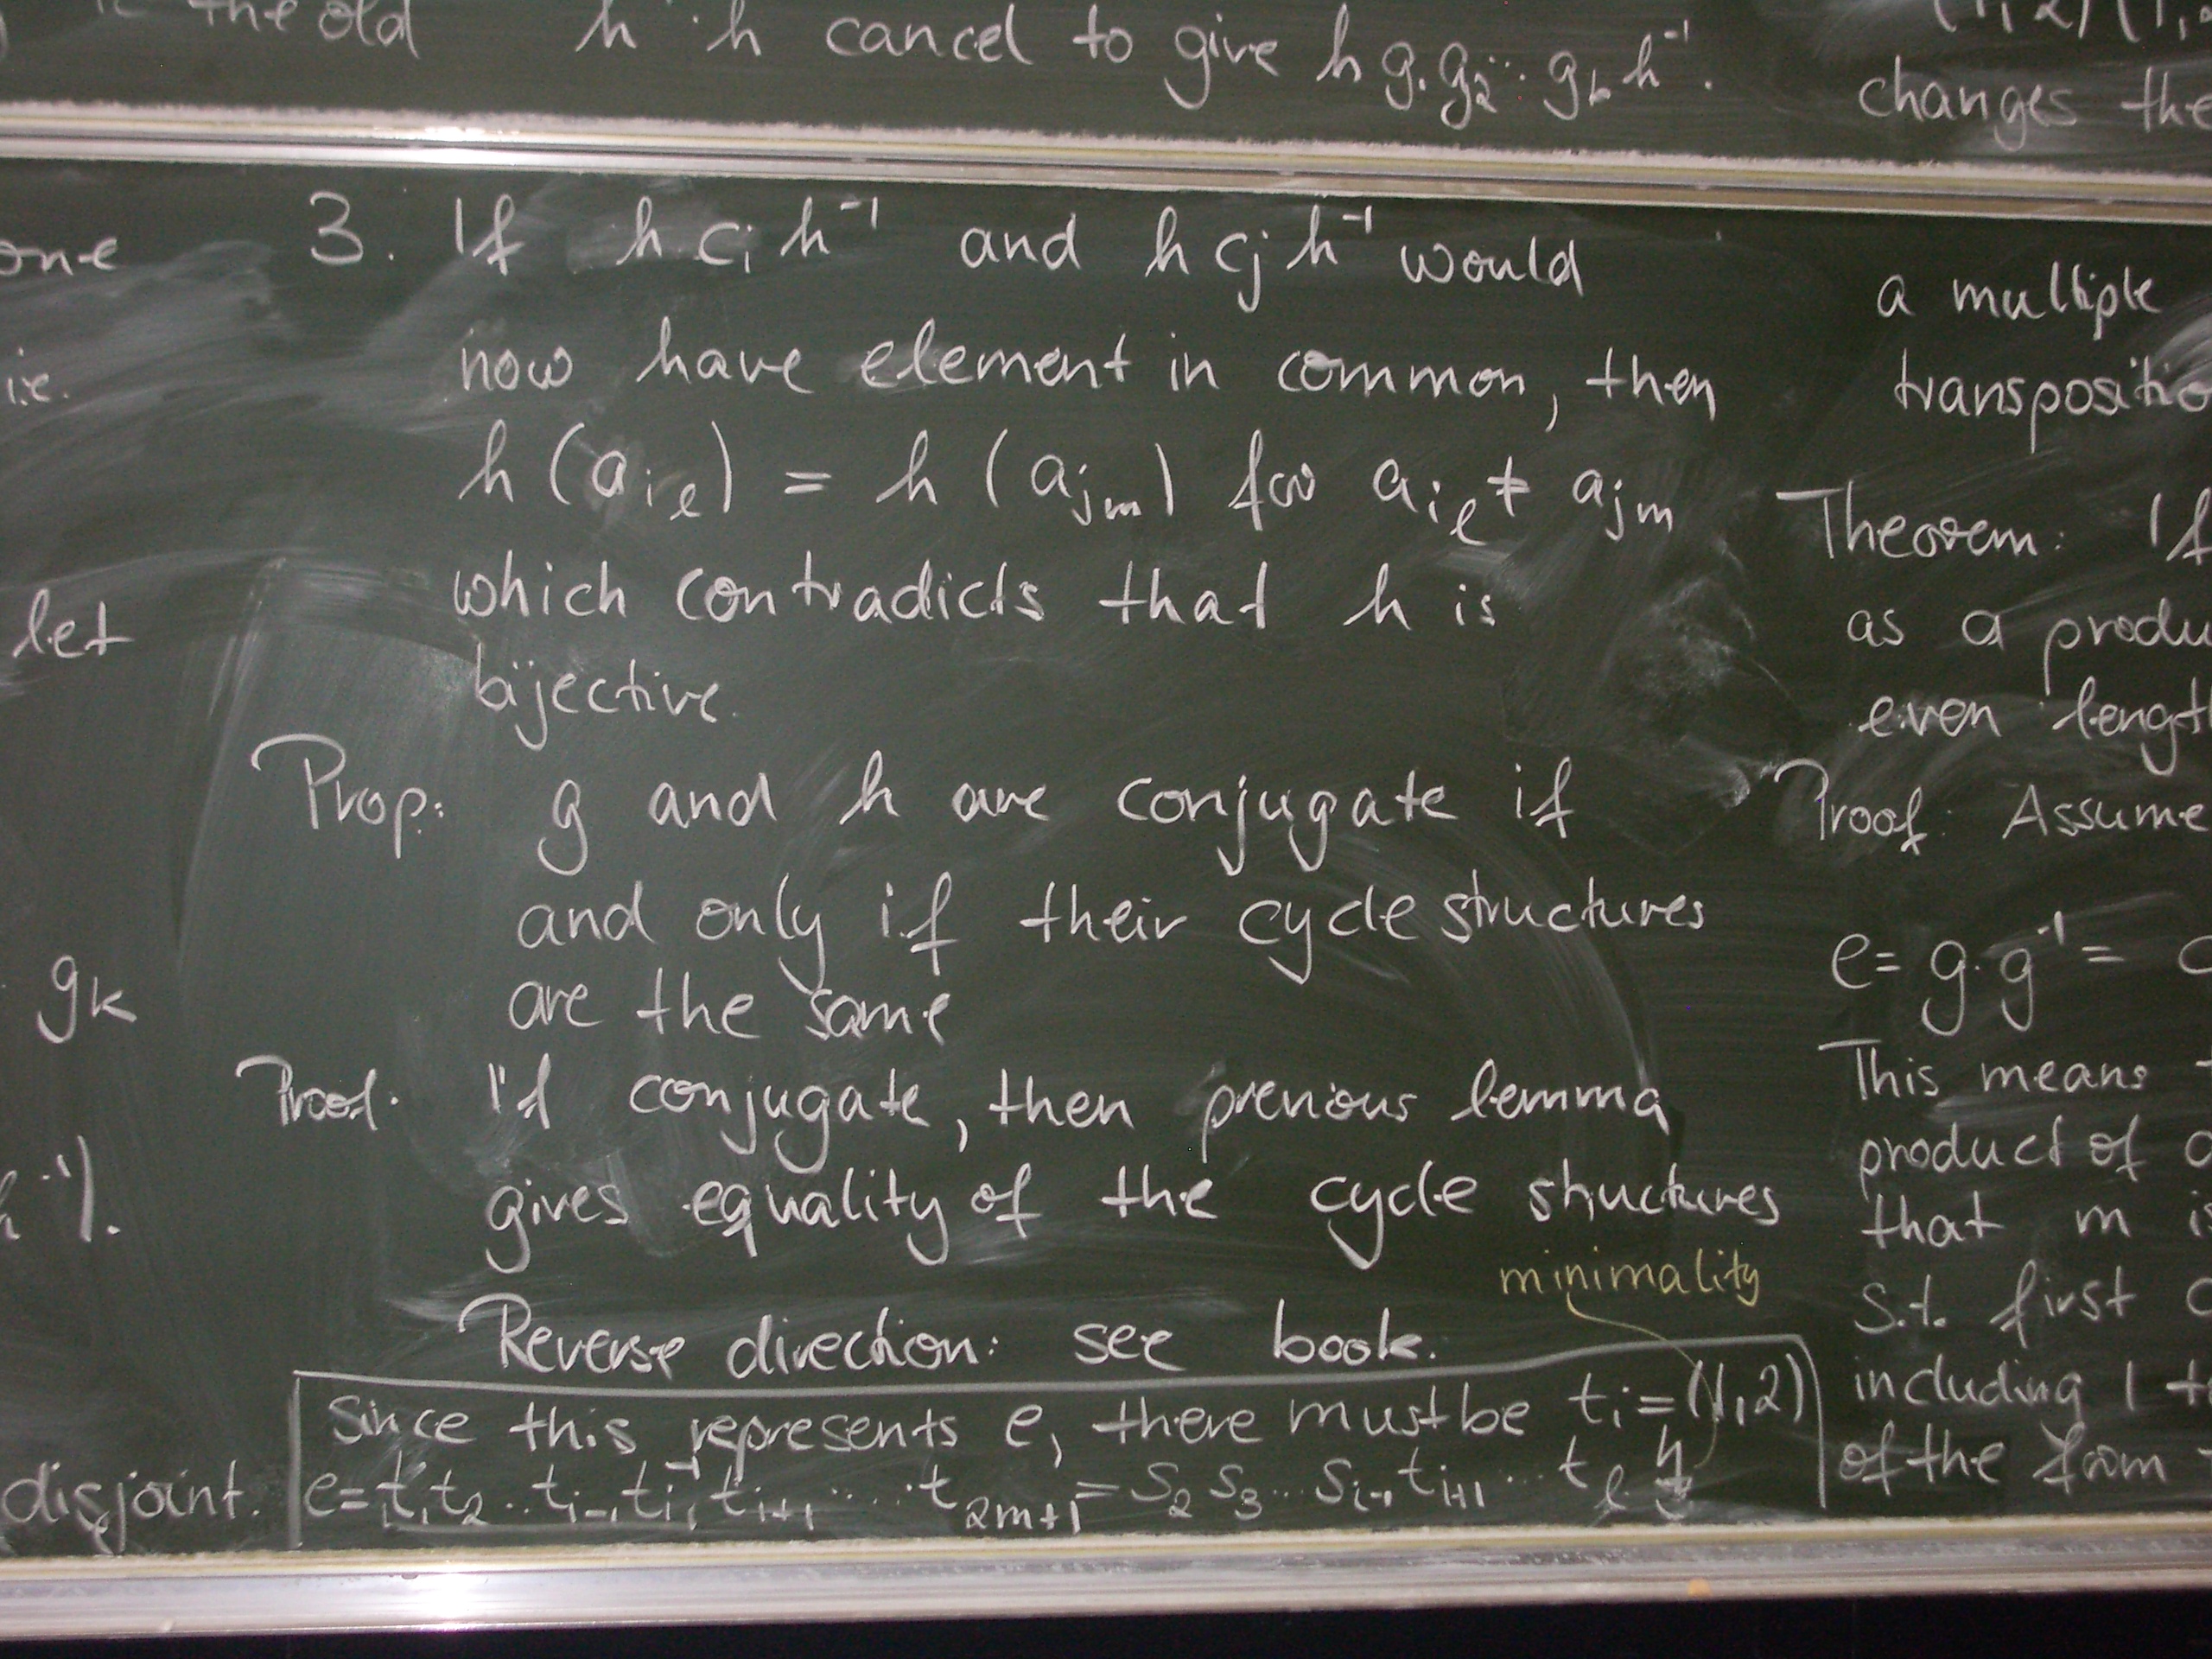 the old h⁻¹·h cancel to give h g₁ g₂ ... gₖ h⁻¹.
3. If h cᵢ h⁻¹ and h cⱼ h⁻¹ would
now have element in common, then
h(a_{iℓ}) = h(a_{jm}) for a_{iℓ} ≠ a_{jm}
which contradicts that h is
bijective.
Prop: g and h are conjugate if
and only if their cycle structures
are the same
Proof. If conjugate, then previous lemma
gives equality of the cycle structures
minimality
Reverse direction: see book.
Since this represents e, there must be tᵢ = (1,2)
e = t₁ t₂ .. tᵢ₋₁ tᵢ, tᵢ₊₁ .... t_{2m+1} = s₂ s₃ ... sᵢ₋₁ tᵢ₊₁ ... t_ℓ
one
i.e.
let
gₖ
h⁻¹).
disjoint.
changes the
a multiple
Theorem: If
as a
even
Proof: Assume
e = g·g⁻¹ =
This means
product of
that m
s.t. first
including 1
of the form